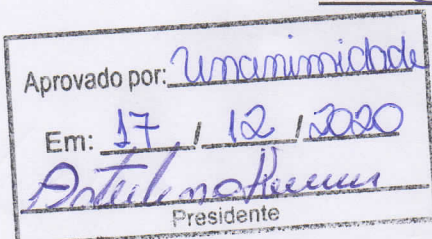 Aprovado por: Unanimidade
Em: 17 / 12 / 2020
Presidente